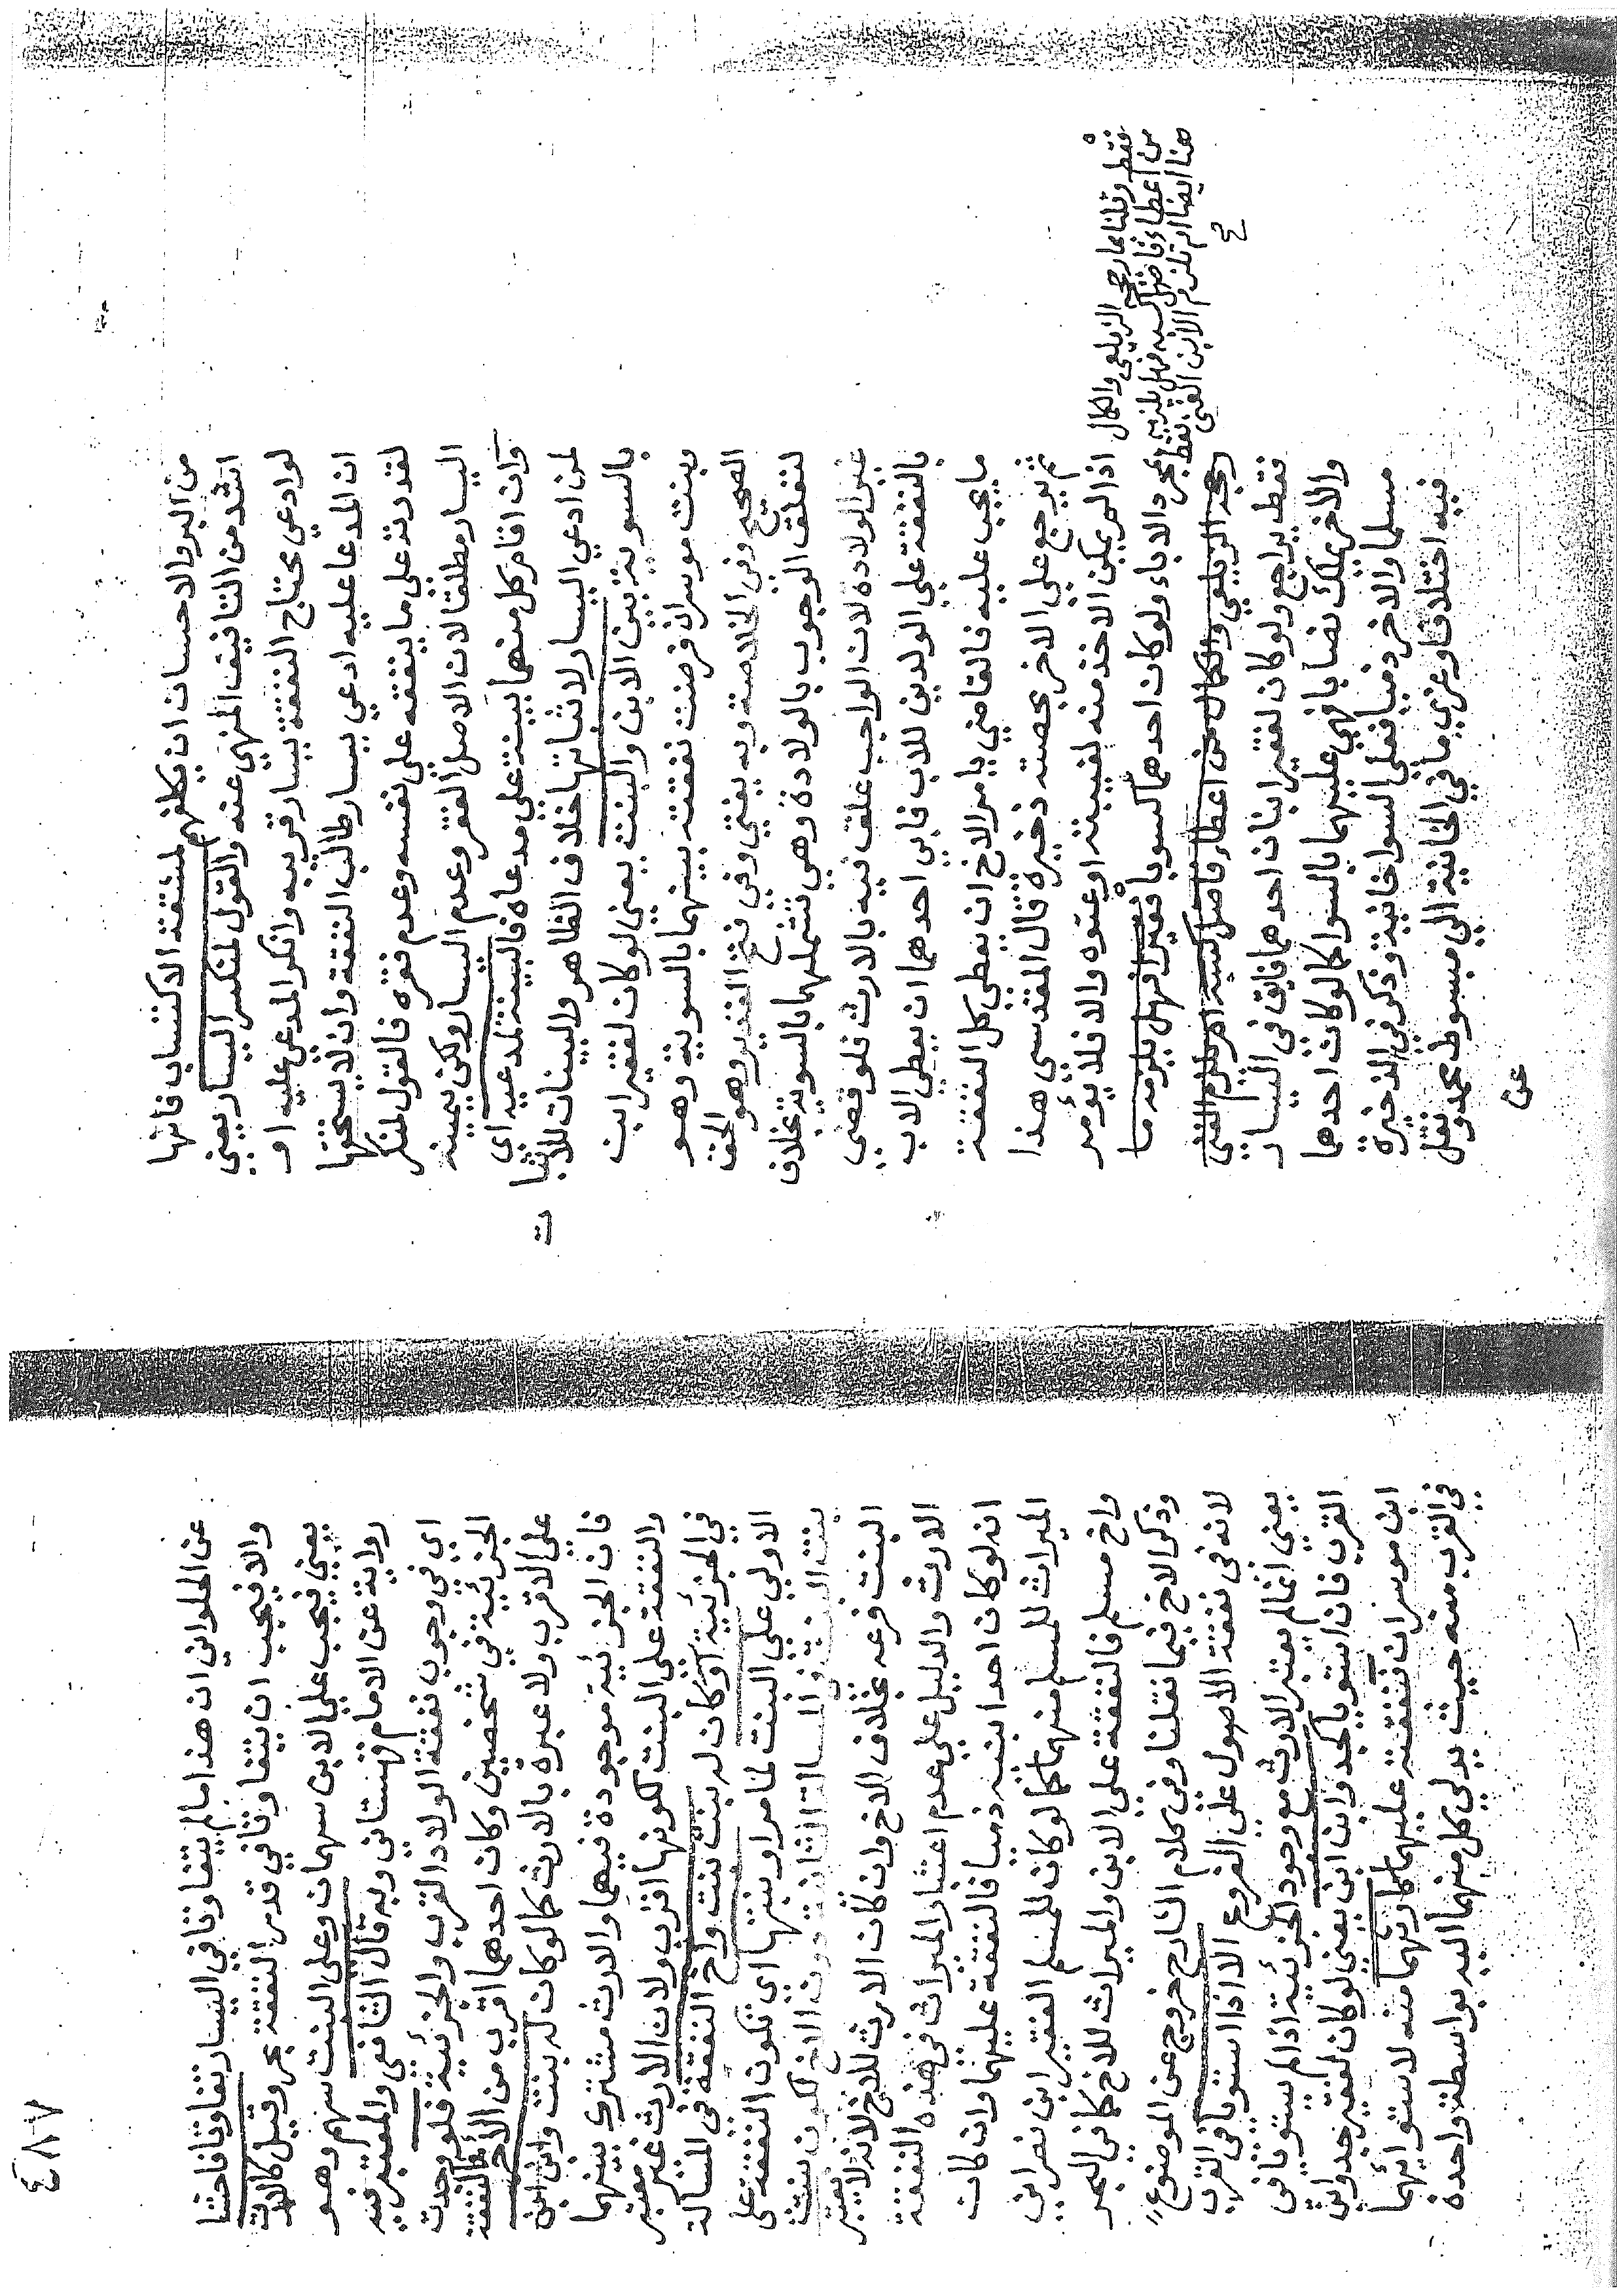 من البر والاحسان ان يكلفهم لمشقة الاكتساب فانها
اشد من التافيف المنهي عنه والقول لمنكر اليسار يعني
لو ادعي محتاج النفقة يسار قريبه وانكر المدعي عليه او
ان المدعا عليه ادعي يسار طالب النفقة وان لا يستحقها
لقدرته علي ما ينفقه علي نفسه وعدم فقره فالقول لمنكر
اليسار مطلقا لان الاصل الفقر وعدم اليسار ولكن بيمينه
وان اقام كل منهما بينة علي مدعاه فالبينة لمدعيه اي
لمن ادعي اليسار لاثباتها خلاف الظاهر والبينات للاثبا
ت
بالسوية بين الابن والبنت يعني لو كان لفقير ابن
وبنت موسران فرضت نفقته بينهما بالسوية وهو
الصحيح وفي الخلاصة وبه يفتي وفي فتح القدير وهو الحق
لتعلق الوجوب بالولادة وهي تشملهما بالسوية بخلاف
غير الولادة لان الواجب علق فيه بالارث فلو قضي
بالنفقة علي الولدين للاب فابي احدهما ان يعطي الاب
ما يجب عليه فالقاضي يامر الاخ ان يعطي كل النفقة
ثم يرجع علي الاخر بحصته ذخيرة قال المقدسي هذا
اذا لم يمكن الاخذ منه لغيبته او عتوه والا فلا يؤمر
بمجرد الاباء ولو كان احدهما كسوبا فقيرا فهل يلزمه ما
رجحه الزيلعي والكمال من اعطاء فاضل كسبه ام يلزم الغني
فقط وقلنا بما رجحه الزيلعي والكمال
من اعطاء فاضل كسبه فهل يلزمه
هنا ايضا ام تلزم الابن الغني فقط
صح
فقط يراجع ولو كان لفقير ابنان احدهما فايق في اليسار
والاخر يملك نصابا فهي عليهما بالسوا كما لو كان احدهما
مسلما والاخر ذميا فعلي السوا خانية وذكر في الذخيرة
فيه اختلافا وعزي ما في الخانية الي مبسوط محمد ونقل
عن
٤٨٧
عن الحلواني ان هذا ما لم يتفاوتا في اليسار تفاوتا فاحشا
والا فيجب ان يتفاوتا في قدر النفقة بحر وقيل كالارث
يعني فيجب علي الابن سهمان وعلي البنت سهم وهو
رواية عن الامام قهستاني وبه قال الشافعي والمعتبر فيه
اي في وجوب نفقة الولاد القرب والجزئية فلو وجدت
الجزئية في شخصين وكان احدهما اقرب من الاخر فالنفقة
علي الاقرب ولا عبرة بالارث كما لو كان له بنت وابن ابن
فان الجزئية موجودة فيهما والارث مشترك بينهما
والنفقة علي البنت لكونها اقرب ولان الارث غير معتبر
في الجزئية او كان له بنت بنت واخ النفقة في المسالة
الاولي علي البنت لما مر او بنتها اي تكون النفقة علي
بنت البنت في المسالة الثانية دون الاخ لكون بنت
البنت فرعه بخلاف الاخ وان كان الارث للاخ لانه لا يعتبر
الارث والدليل علي عدم اعتبار الميراث في هذه النفقة
انه لو كان احد ابنيه ذميا فالنفقة عليهما وان كان
الميراث للمسلم منهما كما لو كان للمسلم الفقير ابن نصراني
واخ مسلم فالنفقة علي الابن والميراث للاخ كما في البحر
وذكر الاخ فيما نقلنا وفي كلام الشارح خروج عن الموضوع
لانه في نفقة الاصول علي الفروع الا اذا استويا في القرب
يعني انما لم يعتبر الارث مع وجود الجزئية اذا لم يستويا في
القرب فان استويا كجد وابن ابن يعني لو كان لفقير جد وابن
ابن موسران فنفقته عليهما كارثهما منه لاستوائهما
في القرب منه حيث يدلي كل منهما اليه بواسطة واحدة